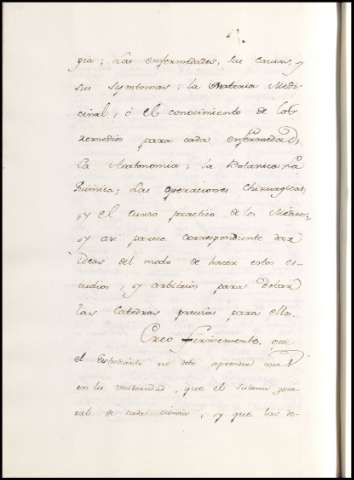 gia; Las enfermedades, sus causas, y
sus Symtomas; la Materia Medi-
cinal, ó el conocimiento de los
remedios para cada enfermedad;
la Anatomia; la Botanica; la
Quimica; Las operaciones Chirurgicas,
y el curso practico de los Medicos,
y asi parece correspondiente dar
ideas del modo de hacer estos es-
tudios, y arbitrios para dotar
las Catedras precisas para ello.
Creo firmemente, que
el Estudiante no debe aprender mas
en la universidad, que el sistema gene-
ral de cada ciencia, y que los de-